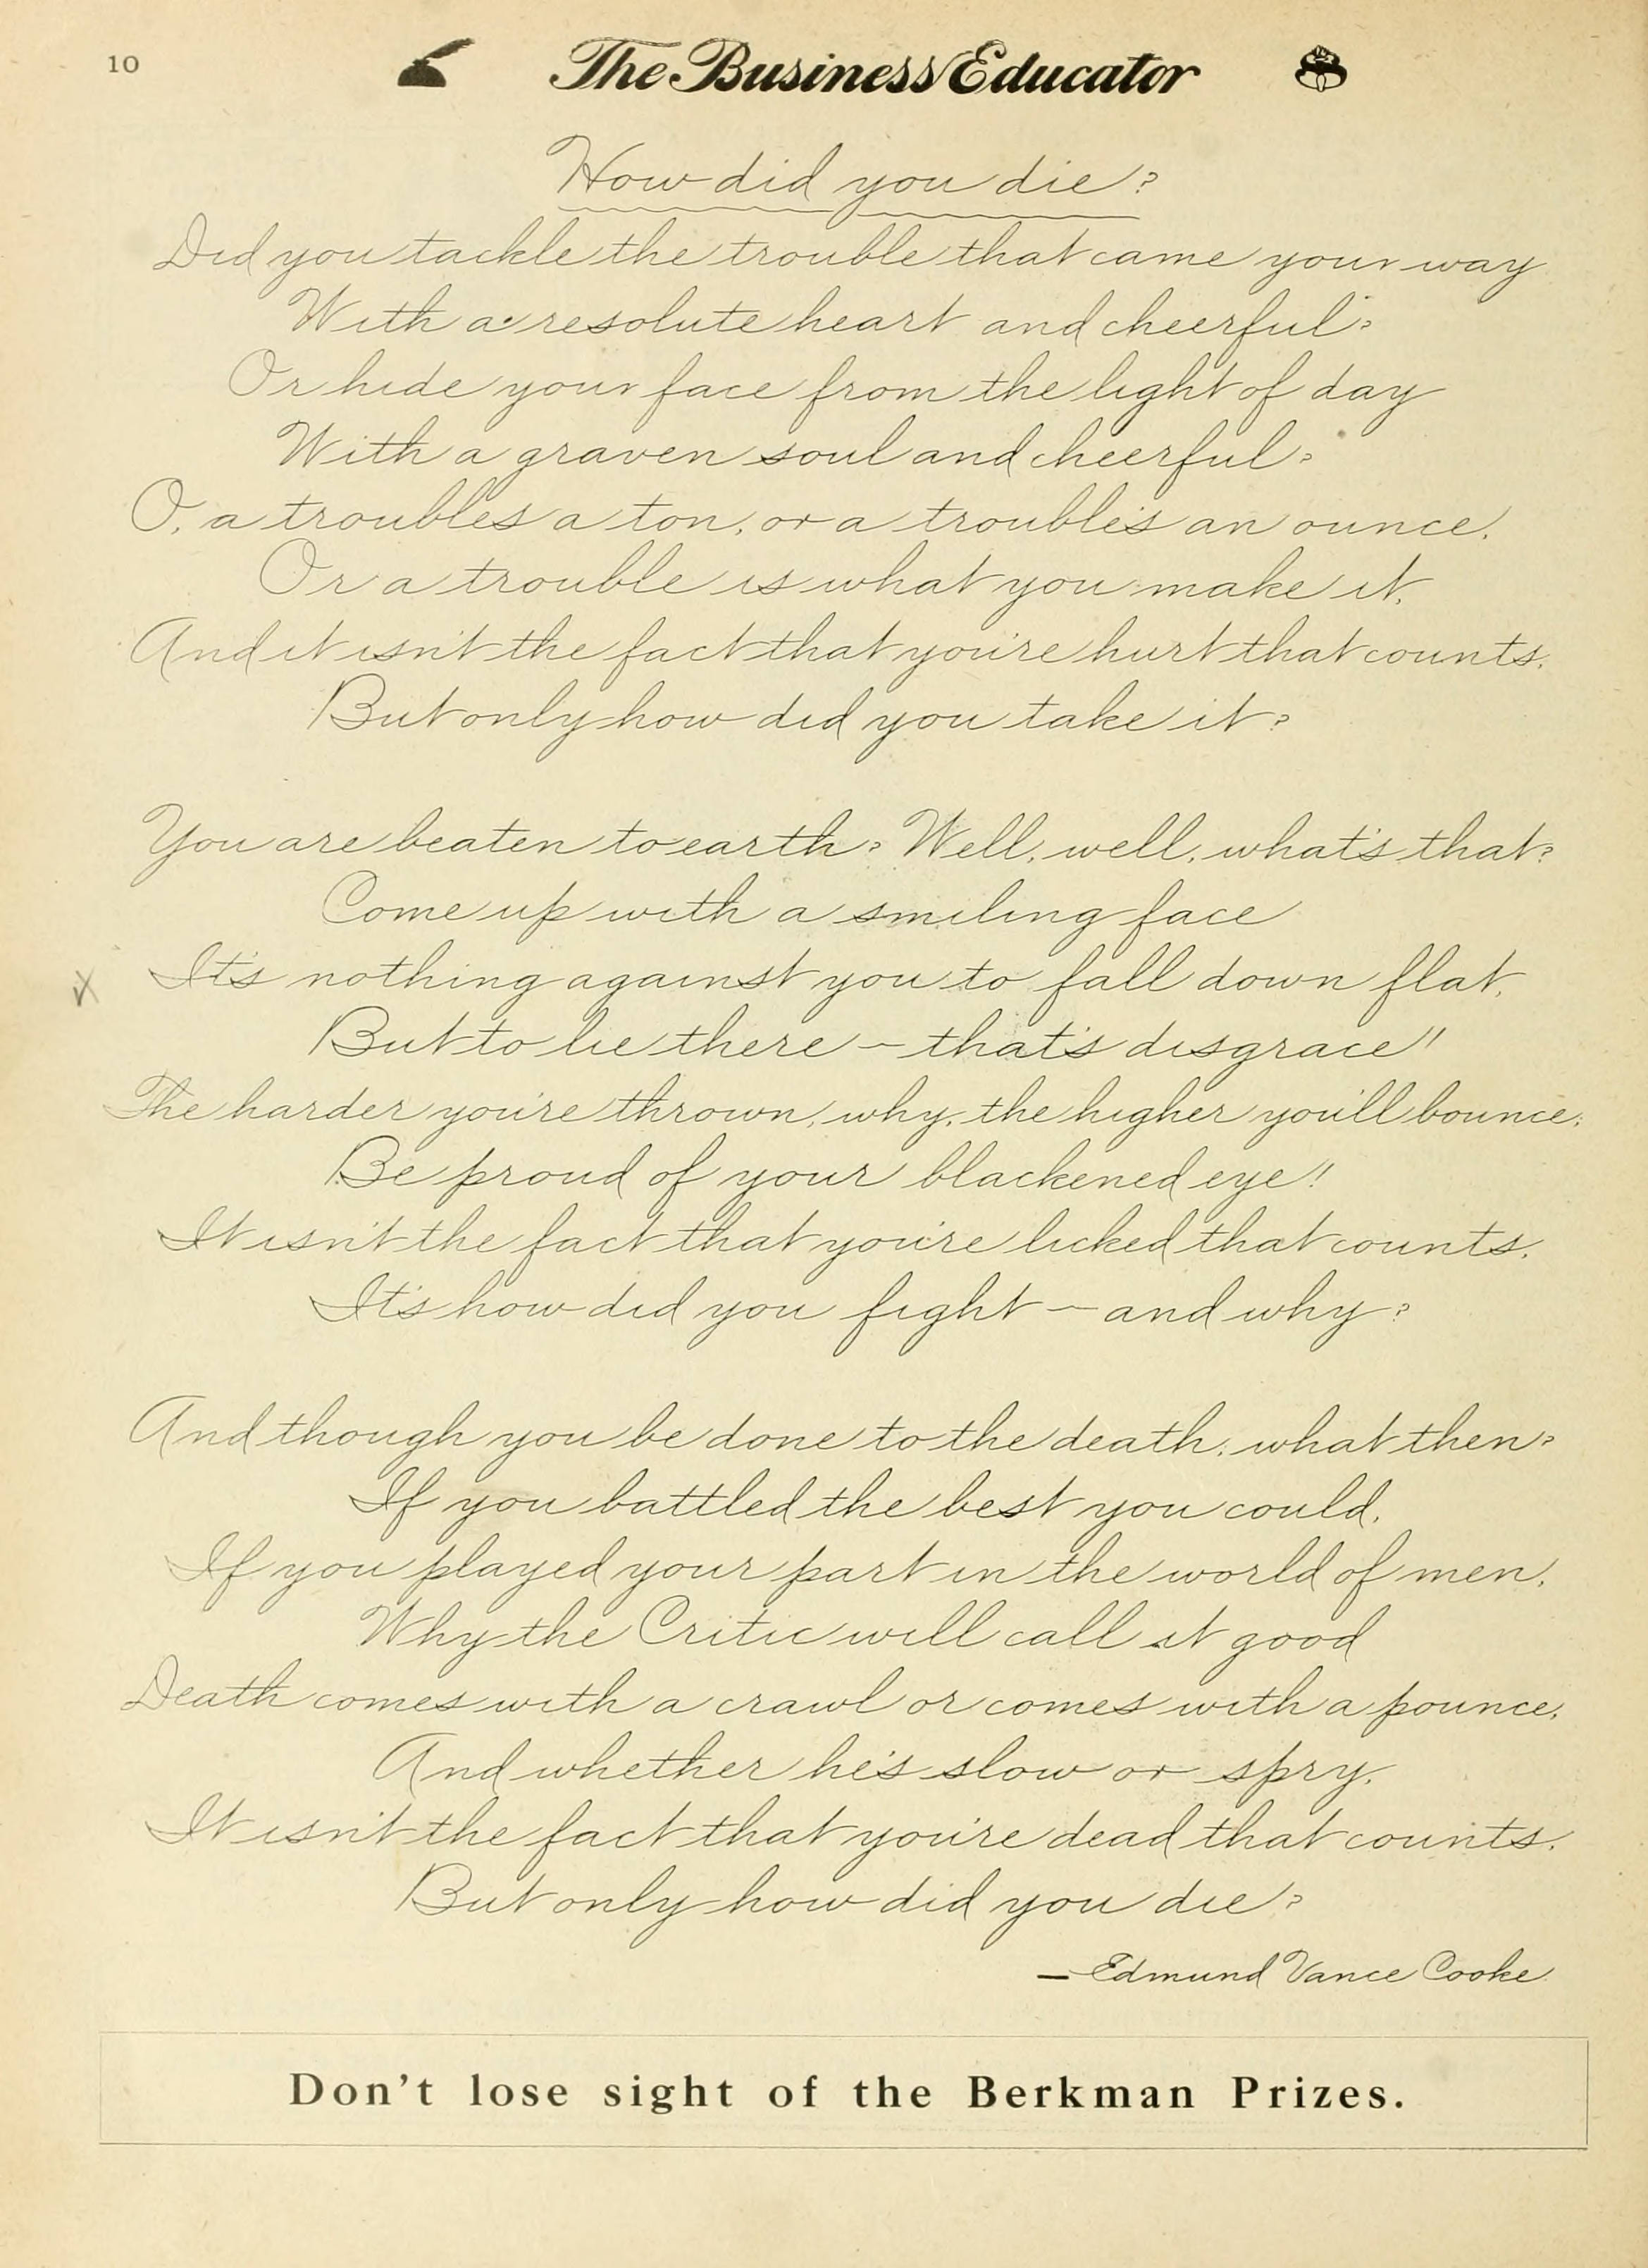 10
The Business Educator
How did you die?
Did you tackle the trouble that came your way
With a resolute heart and cheerful?
Or hide your face from the light of day
With a graven soul and cheerful?
O, a troubles a ton, or a trouble's an ounce,
Or a trouble is what you make it,
And it isn't the fact that you're hurt that counts,
But only how did you take it?
You are beaten to earth? Well, well, what's that?
Come up with a smiling face
It's nothing against you to fall down flat,
But to lie there — that's disgrace!!
The harder you're thrown, why, the higher you'll bounce;
Be proud of your blackened eye!
It isn't the fact that you're licked that counts,
It's how did you fight — and why?
And though you be done to the death, what then?
If you battled the best you could,
If you played your part in the world of men,
Why the Critic will call it good
Death comes with a crawl or comes with a pounce,
And whether he's slow or spry,
It isn't the fact that you're dead that counts,
But only how did you die?
— Edmund Vance Cooke
Don't lose sight of the Berkman Prizes.